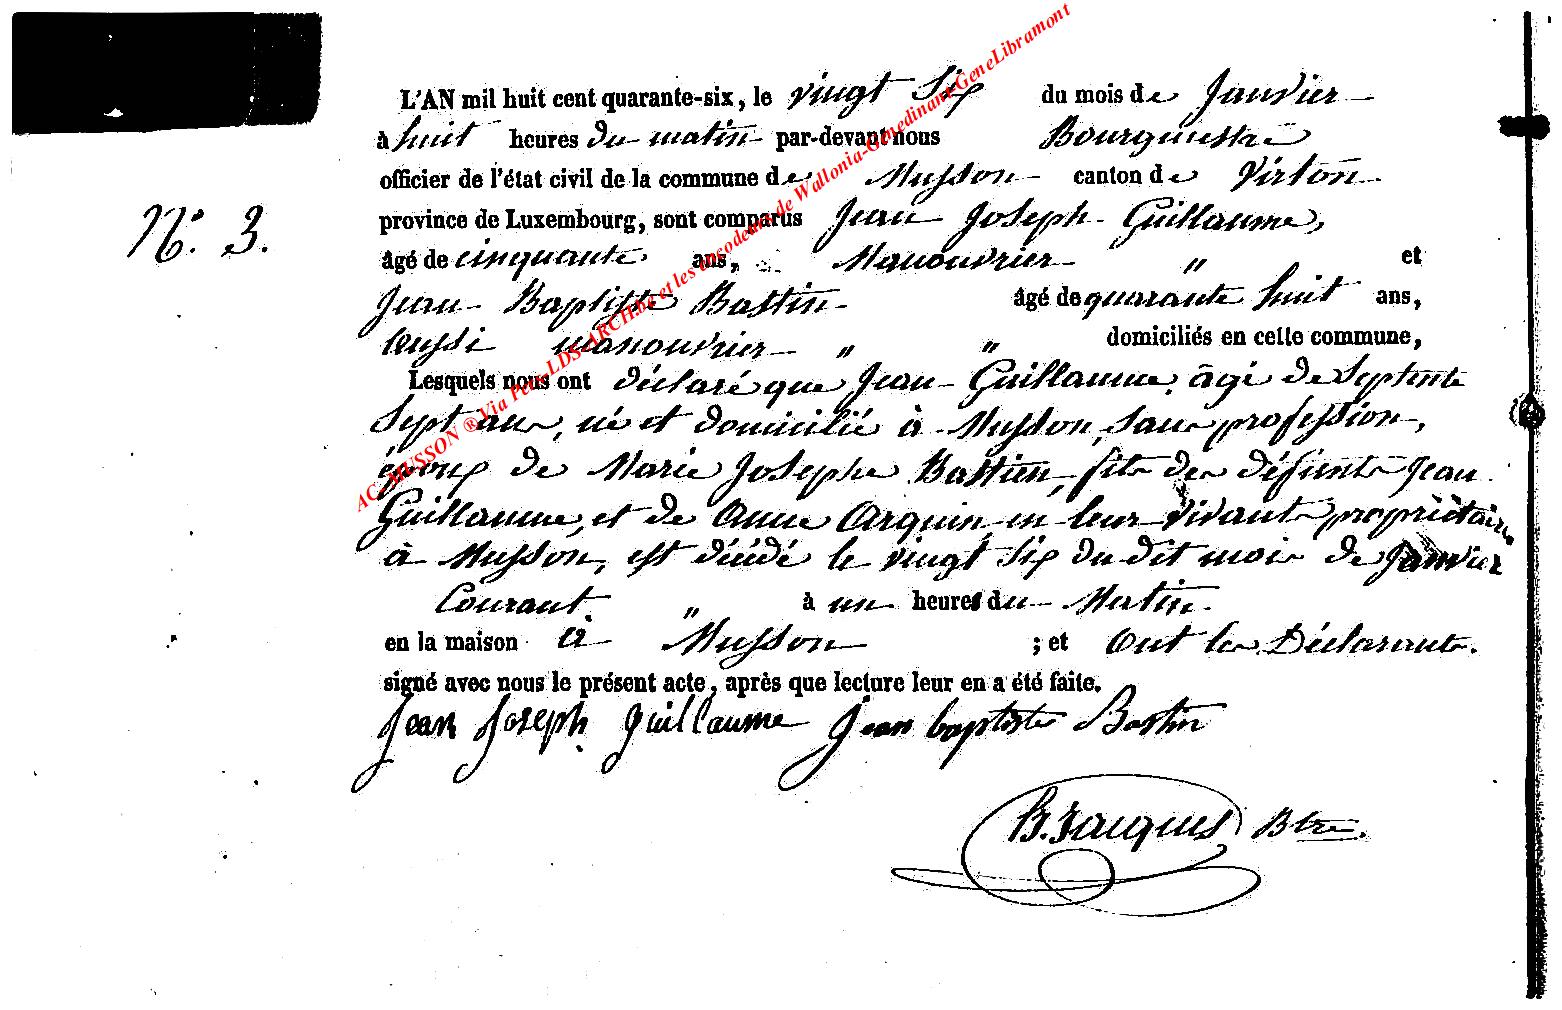 L'AN mil huit cent quarante-six, le vingt Six du mois de Janvier
à huit heures du matin par-devant nous Bourgmestre
officier de l'état civil de la commune de Musson canton de Virton
N.° 3.
province de Luxembourg, sont comparus Jean Joseph Guillaume,
âgé de cinquante ans, Manouvrier " et
Jean Baptiste Bastin âgé de quarante huit ans,
aussi manouvrier " " domiciliés en cette commune,
Lesquels nous ont déclaré que Jean Guillaume âgé de Septente
Sept ans, né et domicilié à Musson, sans profession,
époux de Marie Josephe Bastien, fils des défunts Jean
Guillaume, et de Anne Arquin, en leur vivants propriétaires
à Musson, est décédé le vingt Six du dit mois de Janvier
Courant. " à un heures du Matin.
en la maison à Musson ; et Ont les Déclarants.
signé avec nous le présent acte, après que lecture leur en a été faite.
Jean Joseph Guillaume Jean baptiste Bastin
B. Jacques Btre.
AC-MUSSON ® Via Petr-LDS-ARCH.be et les encodeurs de Wallonia-Genedinant-GeneLibramont